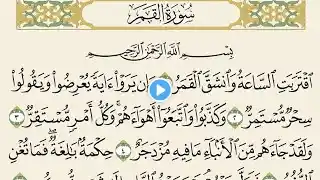 سُورَةُ القَمَرِ
بِسْمِ اللَّهِ الرَّحْمَٰنِ الرَّحِيمِ
اقْتَرَبَتِ السَّاعَةُ وَانشَقَّ الْقَمَرُ ۝١ وَإِن يَرَوْا۟ ءَايَةً يُعْرِضُوا۟ وَيَقُولُوا۟
سِحْرٌ مُّسْتَمِرٌّ ۝٢ وَكَذَّبُوا۟ وَاتَّبَعُوٓا۟ أَهْوَآءَهُمْ ۚ وَكُلُّ أَمْرٍ مُّسْتَقِرٌّ ۝٣
وَلَقَدْ جَآءَهُم مِّنَ الْأَنۢبَآءِ مَا فِيهِ مُزْدَجَرٌ ۝٤ حِكْمَةٌۢ بَٰلِغَةٌ ۖ فَمَا تُغْنِ
النُّذُرُ